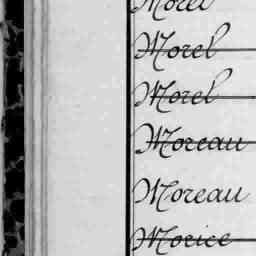 Morel
Morel
Morel
Moreau
Moreau
Morice